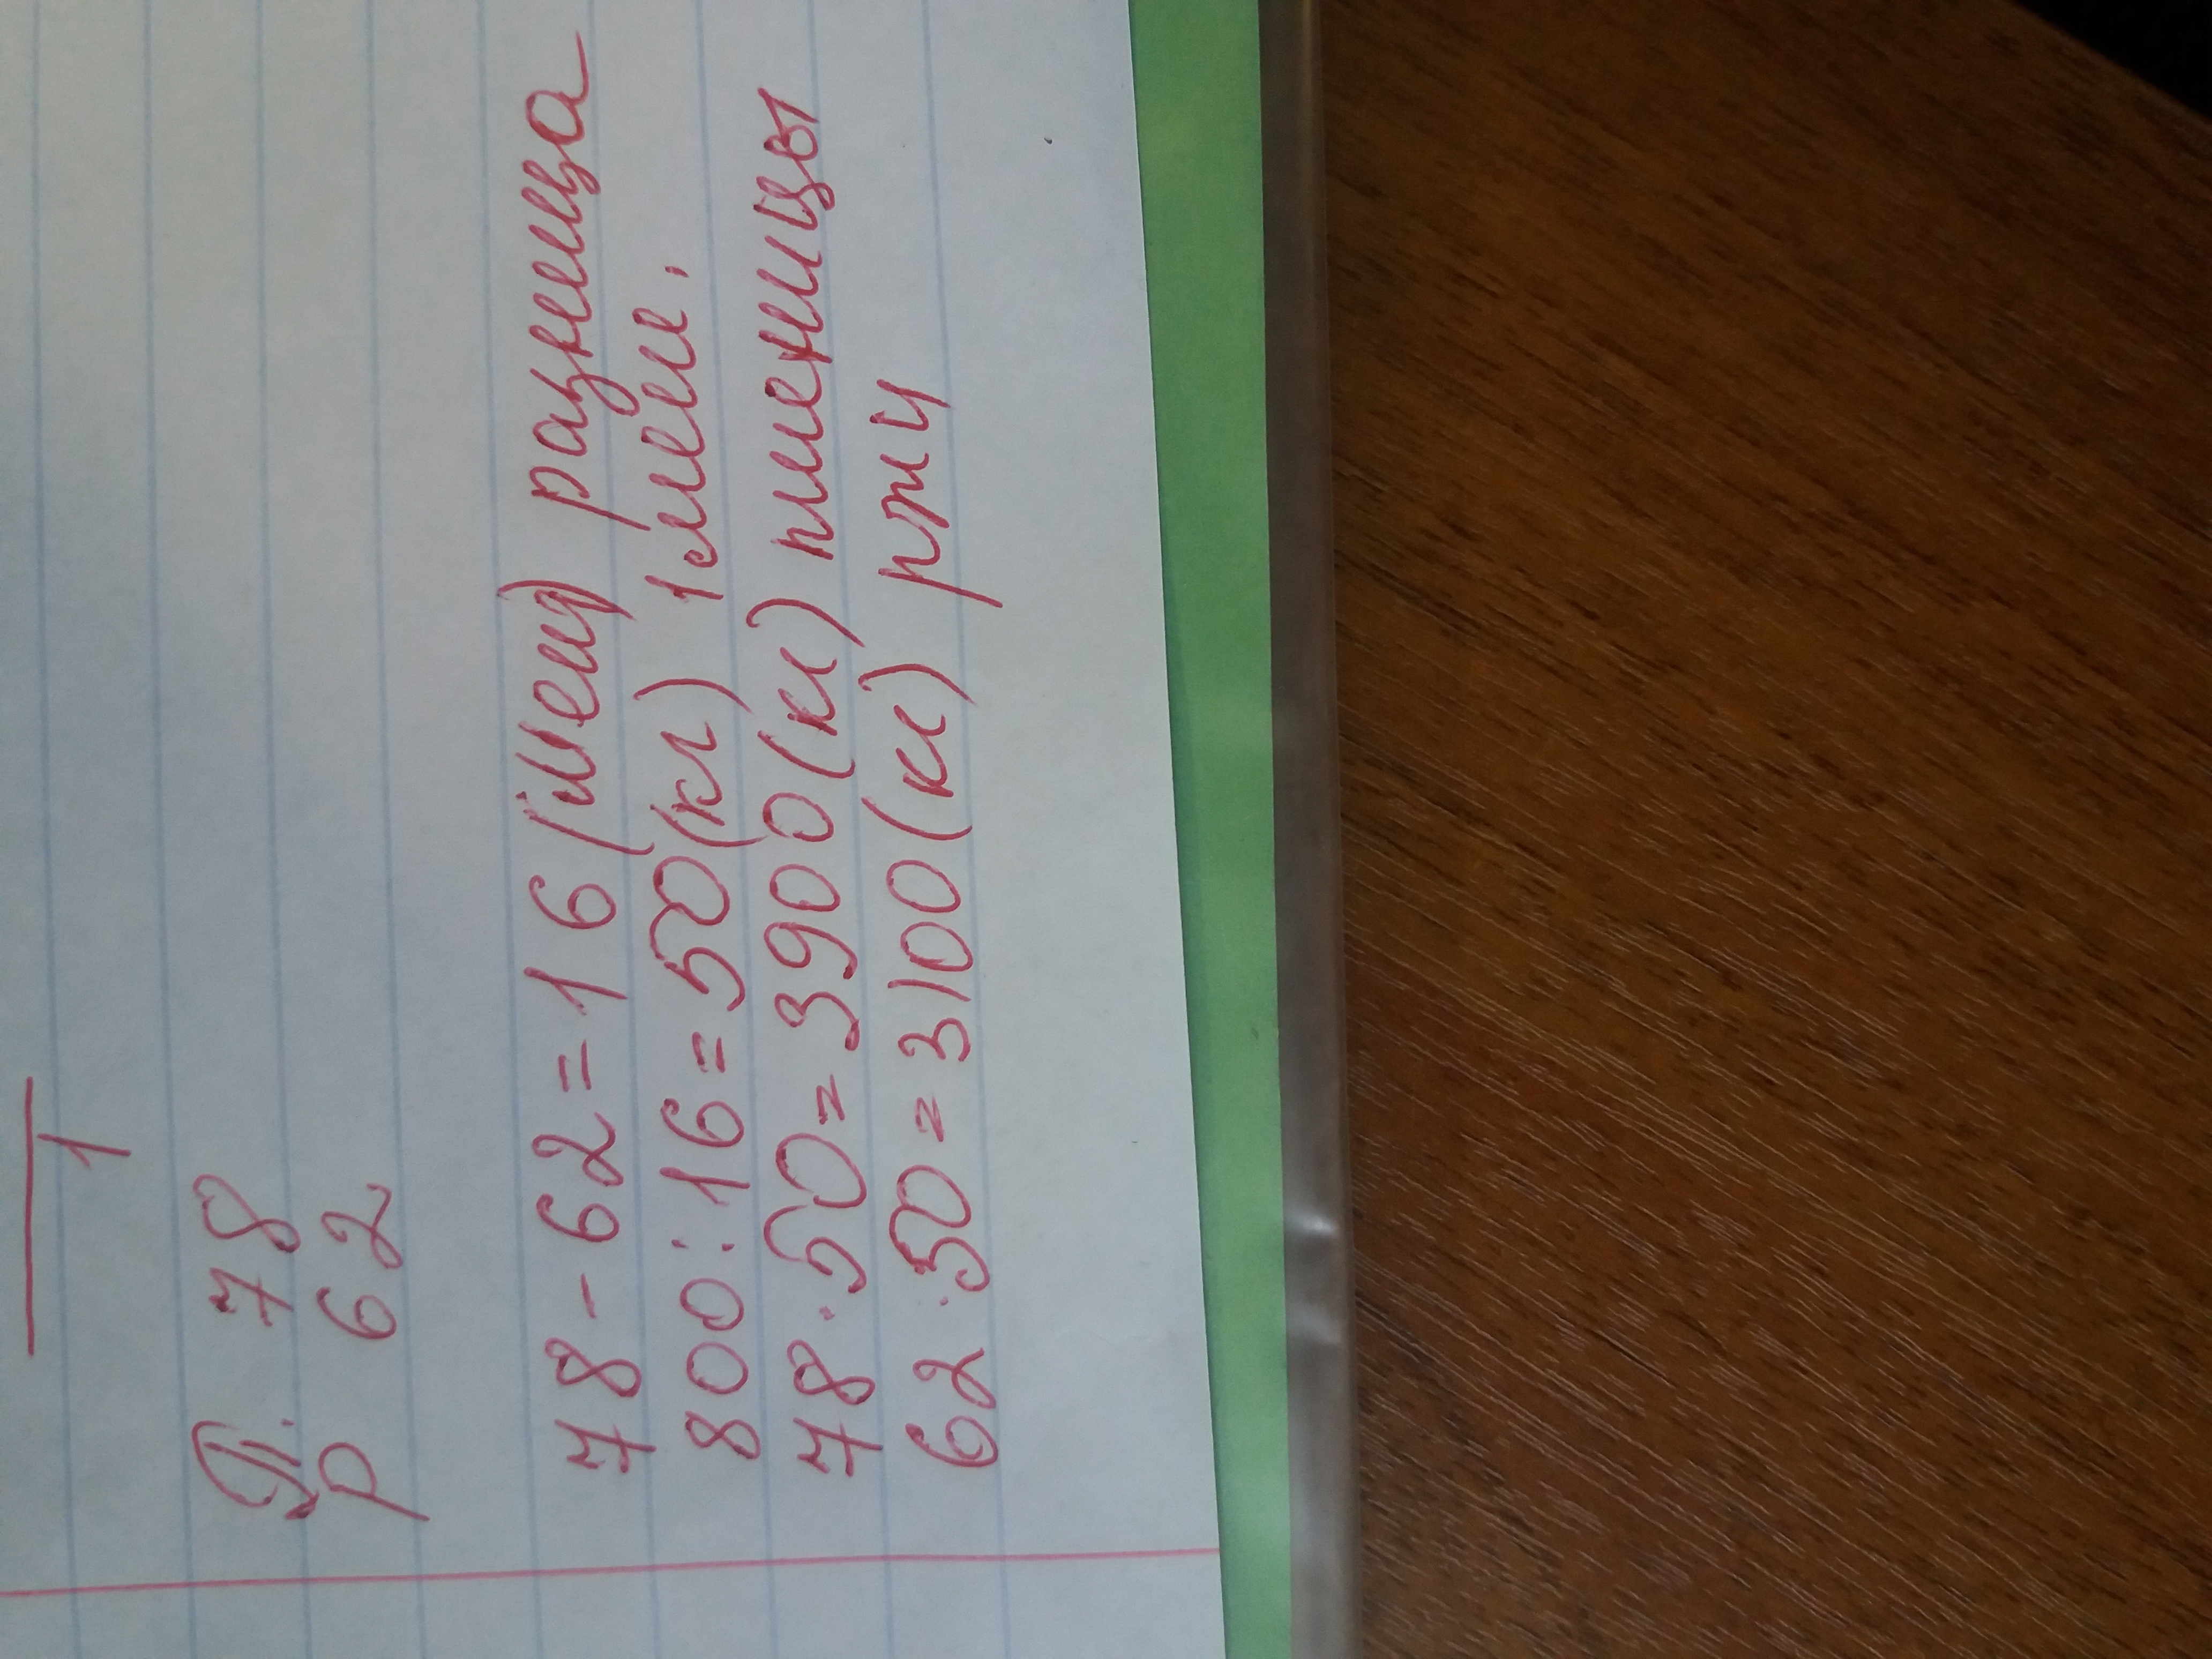 1
П. 78
Р 62
78 - 62 = 16 (меш) разница
800 : 16 = 50 (кг) 1 меш.
78 · 50 = 3900 (кг) пшеницы
62 · 50 = 3100 (кг) ржи